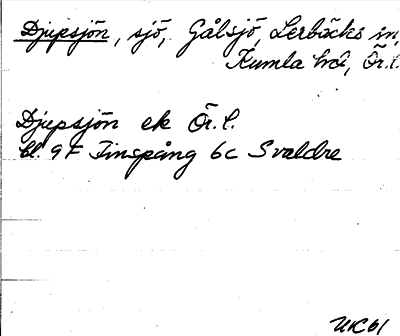 Djupsjön, sjö, Gålsjö, Lerbäcks sn,
Kumla hd, Ör.l.
Djupsjön ek Ör.l.
bl. 9F Finspång 6c Svaldre
UK 61